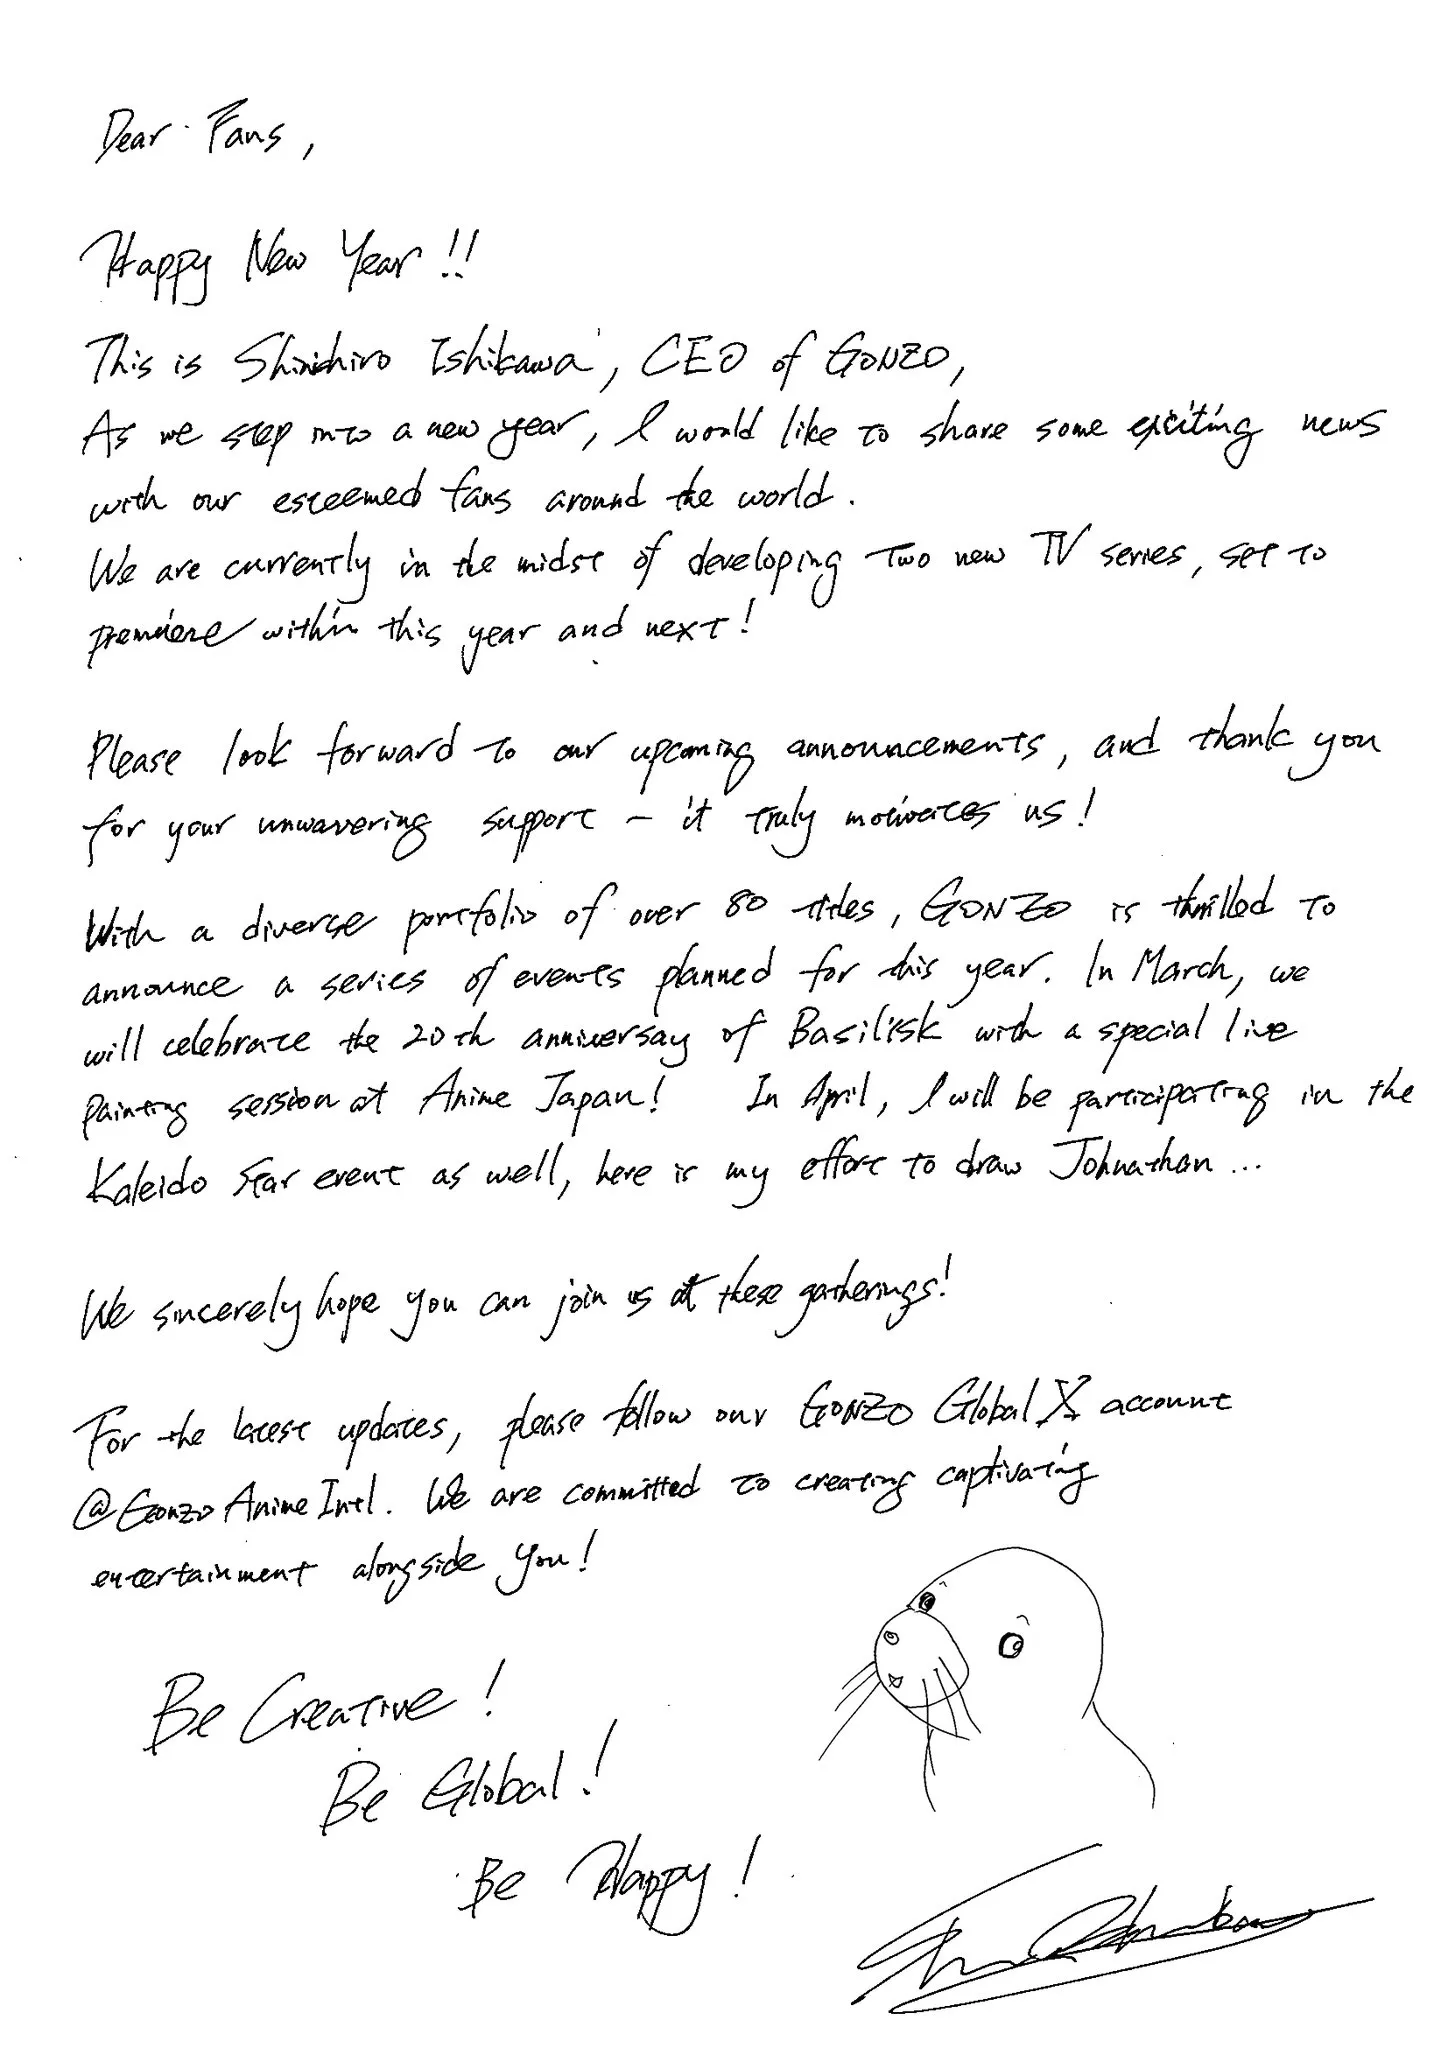 Dear Fans,
Happy New Year!!
This is Shinichiro Ishikawa, CEO of GONZO,
As we step into a new year, I would like to share some exciting news
with our esteemed fans around the world.
We are currently in the midst of developing two new TV series, set to
premiere within this year and next!
Please look forward to our upcoming announcements, and thank you
for your unwavering support - it truly motivates us!
With a diverse portfolio of over 80 titles, GONZO is thrilled to
announce a series of events planned for this year. In March, we
will celebrate the 20th anniversay of Basilisk with a special live
painting session at Anime Japan! In April, I will be participating in the
Kaleido Star event as well, here is my effort to draw Johnathan...
We sincerely hope you can join us at these gatherings!
For the latest updates, please follow our GONZO Global X account
@Gonzo Anime Intl. We are committed to creating captivating
entertainment alongside you!
Be Creative!
Be Global!
Be Happy!